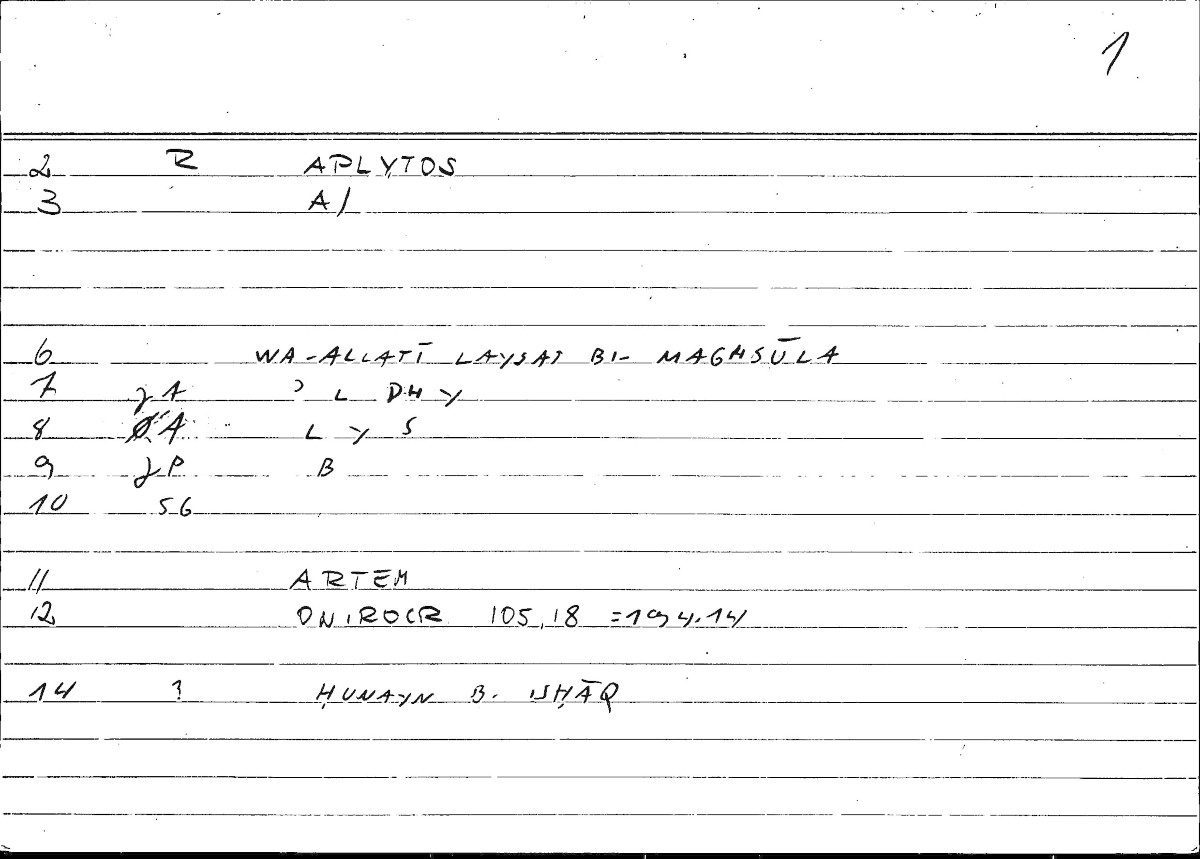 1
2 R APLYTOS
3 A/
6 WA-ALLATĪ LAYSAT BI- MAGHSŪLA
7 γA ʾ L DH Y
8 A L Y S
9 γP B
10 56
11 ARTEM
12 ONIROCR 105,18 =194.14
14 ? ḤUNAYN B. ISḤĀQ